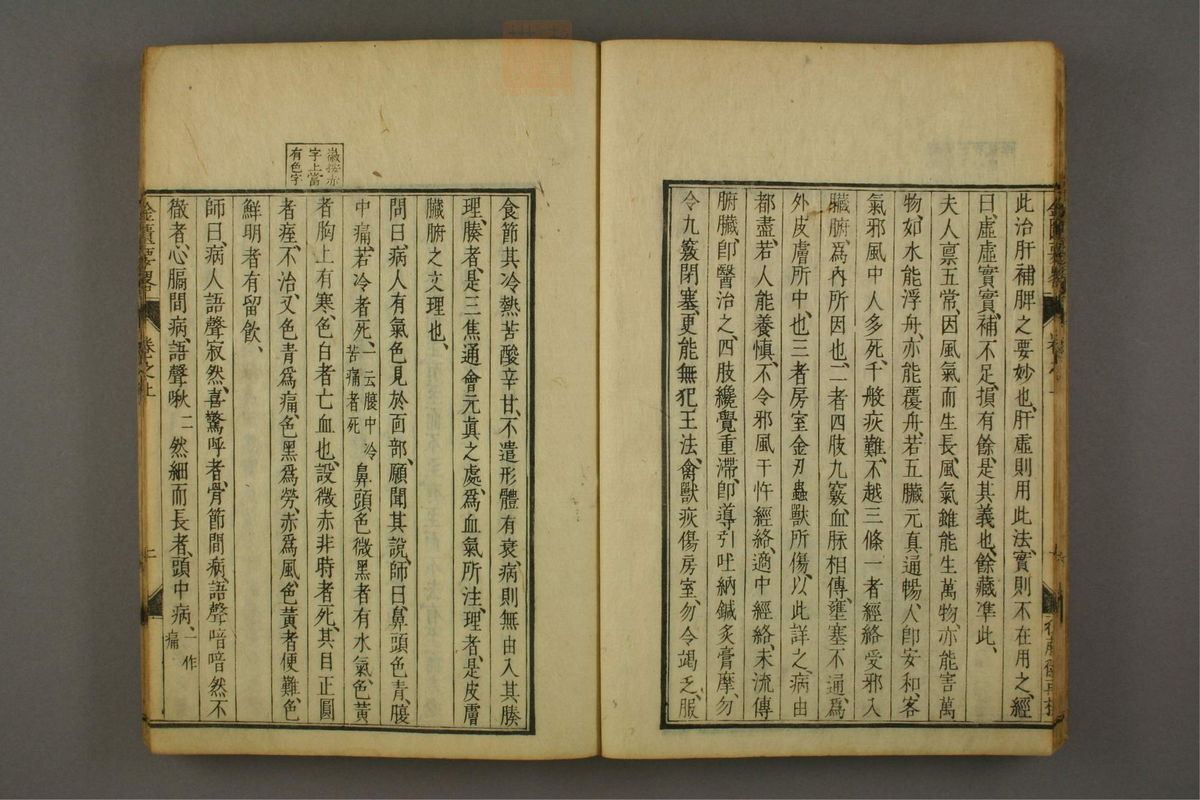 此治肝補脾之要妙也、肝虛則用此法、實則不在用之、經
曰、虛虛實實、補不足、損有餘、是其義也、餘藏準此、
夫人禀五常、因風氣而生長、風氣雖能生萬物、亦能害萬
物、如水能浮舟、亦能覆舟、若五臟元真通暢、人卽安和、客
氣邪風中人多死、千般疢難、不越三條、一者經絡受邪入
臟腑、爲內所因也、二者四肢九竅、血脉相傳、壅塞不通、爲
外皮膚所中也、三者房室金刃蟲獸所傷、以此詳之、病由
都盡、若人能養慎、不令邪風干忤經絡、適中經絡、未流傳
腑臟、卽醫治之、四肢纔覺重滯、卽導引吐納鍼灸膏摩、勿
令九竅閉塞、更能無犯王法、禽獸災傷房室、勿令竭乏、服
食節其冷熱苦酸辛甘、不遣形體有衰、病則無由入其腠
理、腠者、是三焦通會元真之處、爲血氣所注、理者、是皮膚
臟腑之文理也、
問曰、病人有氣色見於面部、願聞其說、師曰、鼻頭色青、腹
中痛、若冷者死、一云腹中冷苦痛者死 鼻頭色微黑者有水氣、色黃
徵按赤
字上當
有色字
者胸上有寒、色白者亡血也、設微赤非時者死、其目正圓
者痓、不治、又色青爲痛、色黑爲勞、赤爲風、色黃者便難、色
鮮明者有留飲、
師曰、病人語聲寂然、喜驚呼者、骨節間病、語聲喑喑然不
徹者、心膈間病、語聲啾二然細而長者、頭中病、一作痛
金匱要畧 卷之上